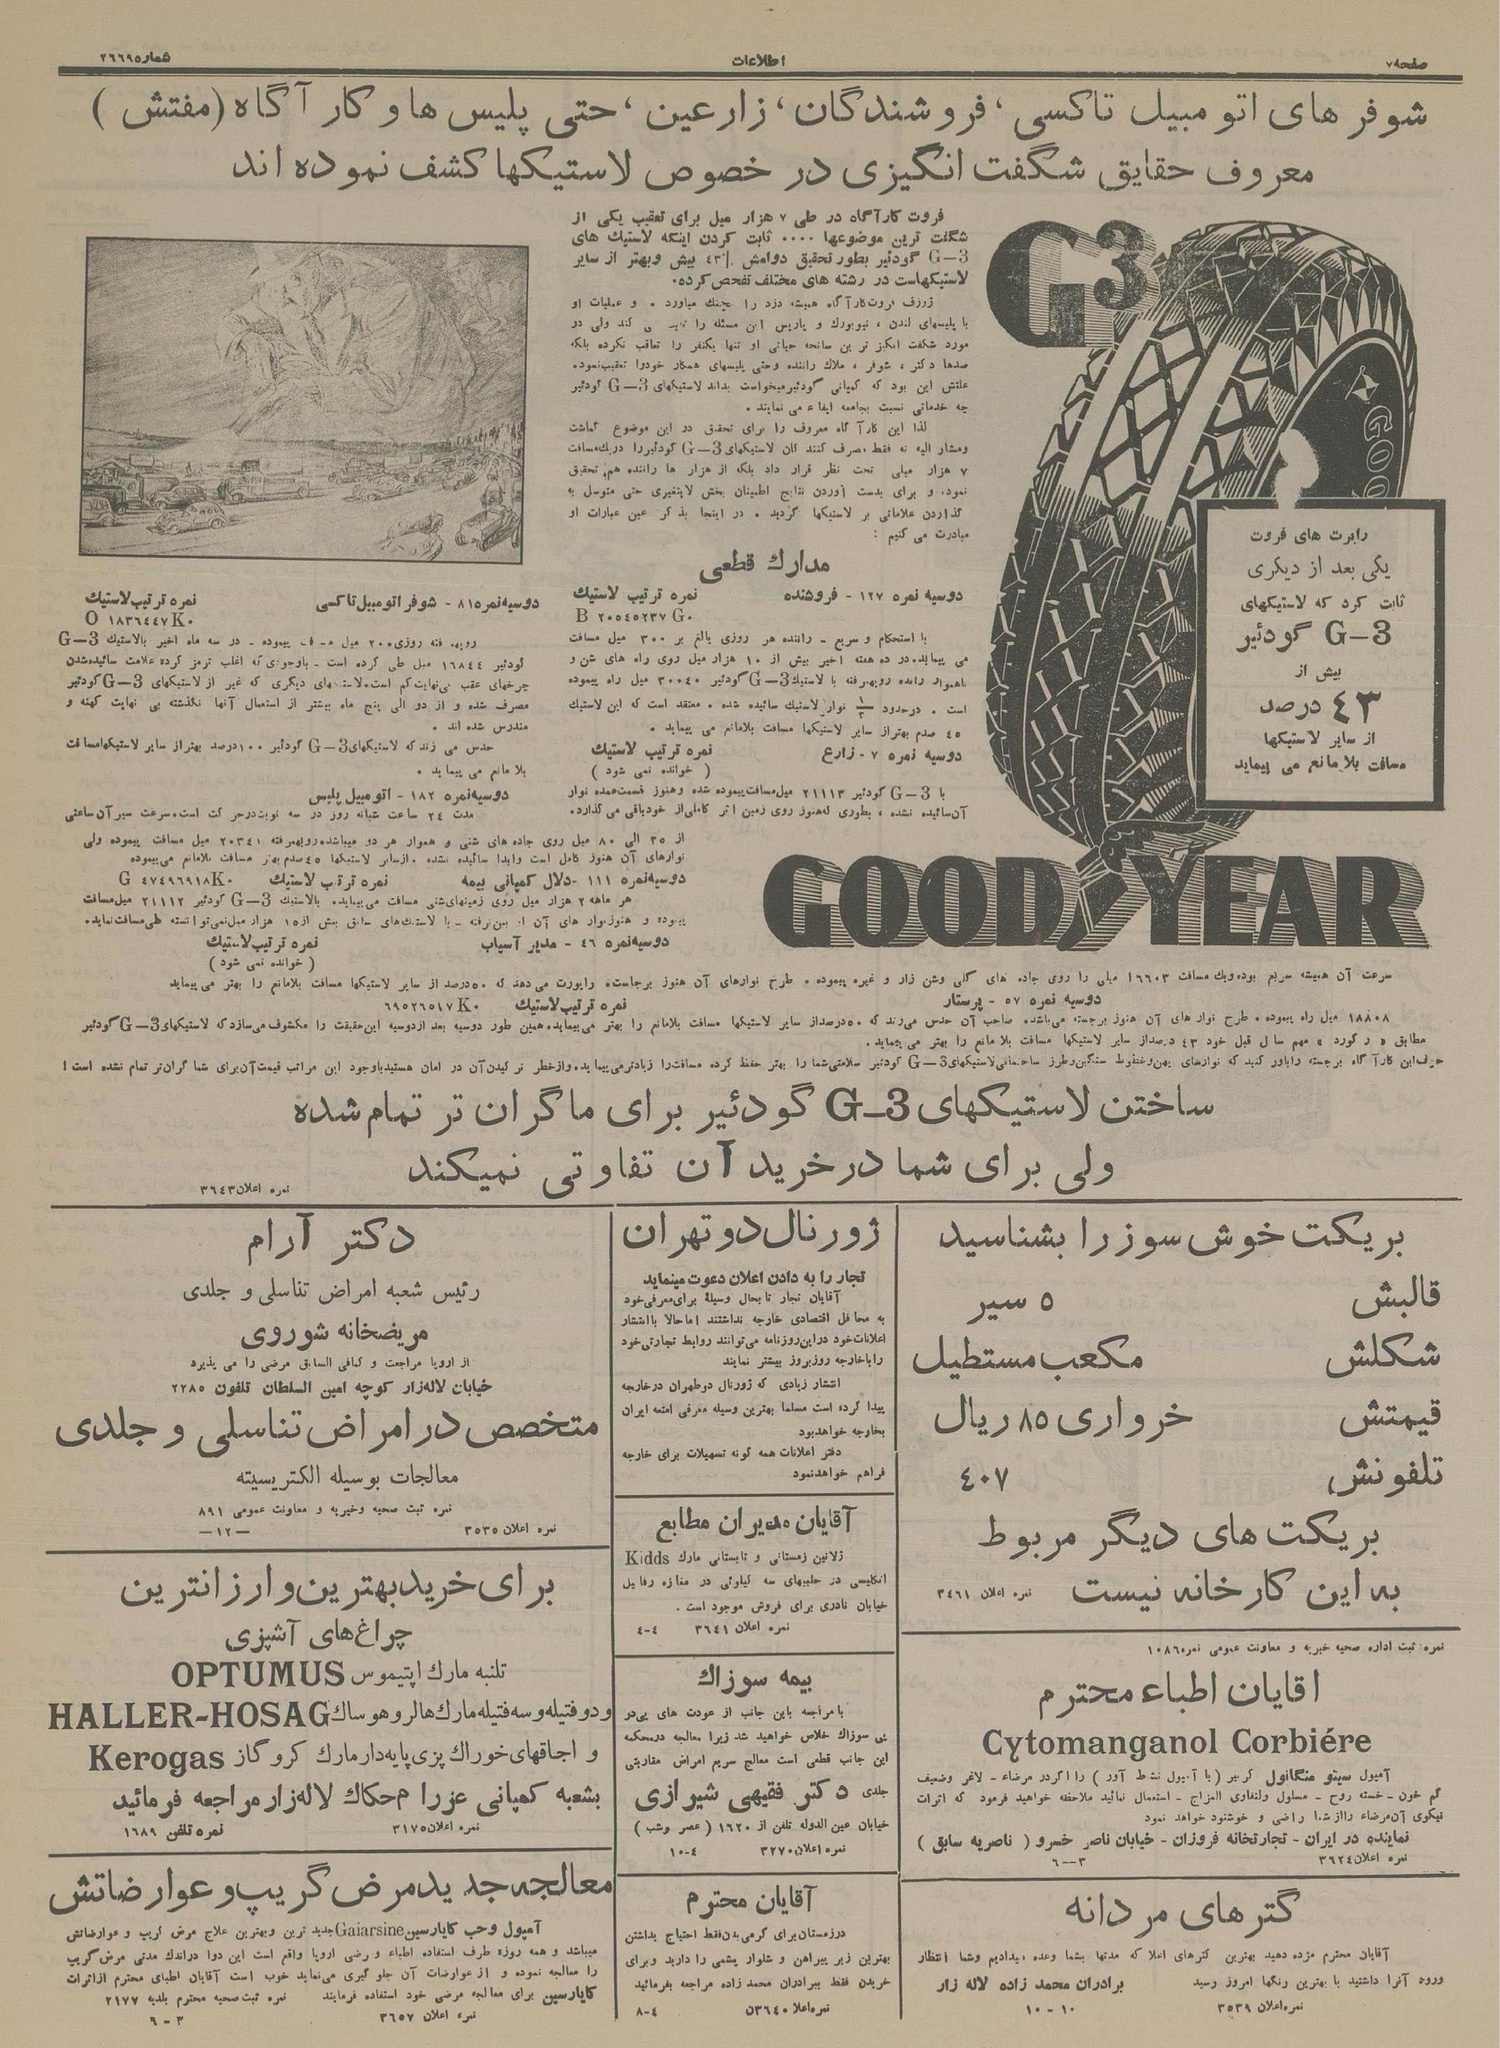 صفحه ۷
اطلاعات
شماره ۲۶۶۹
شوفرهای اتومبیل تاکسی، فروشندگان، زارعین، حتی پلیس ها و کار آگاه (مفتش)
معروف حقایق شگفت انگیزی در خصوص لاستیکها کشف نموده اند
G3
GOOD YEAR
راپرت های فروت
یکی بعد از دیگری
ثابت کرد که لاستیکهای
G-3 گودئیر
بیش از
۴۳ درصد
از سایر لاستیکها
مسافت بلامانع می پیماید
فروت کارآگاه در طی ۷ هزار میل برای تعقیب یکی از
شگفت ترین موضوعها .... ثابت کردن اینکه لاستیک های
G-3 گودئیر بطور تحقیق دوامش ۴۳٪ بیش و بهتر از سایر
لاستیکهاست در رشته های مختلف تفحص کرده.
ژوزف فروت کارآگاه همیشه دزد را بچنگ میاورد . و عملیات او
با پلیسهای لندن ، نیویورک و پاریس این مسئله را می کند ولی در
مورد شگفت انگیز ترین سانحه حیاتی او تنها یکنفر را تعاقب نکرده بلکه
صدها دکتر ، شوفر ، ملاک راننده وحتی پلیسهای همکار خودرا تعقیب نمود.
علتش این بود که کمپانی گودئیر میخواست بداند لاستیکهای G-3 گودئیر
چه خدماتی نسبت بجامعه ایفاء می نمایند .
لذا این کارآ گاه معروف را برای تحقیق در این موضوع گماشت
ومشار الیه نه فقط مصرف کنند گان لاستیکهای G-3 گودئیر را دریک مسافت
۷ هزار میلی تحت نظر قرار داد بلکه از هزار ها راننده هم تحقیق
نمود، و برای بدست آوردن نتایج اطمینان بخش لایتغیری حتی متوسل به
گذاردن علاماتی بر لاستیکها گردید . در اینجا بذ کر عین عبارات او
مبادرت می کنیم :
مدارک قطعی
دوسیه نمره ۱۲۷ - فروشنده
نمره ترتیب لاستیک
B ۲۰۵۴۵۲۳۷ G۰
با استحکام و سریع - راننده هر روزی بالغ بر ۳۰۰ میل مسافت
می پیماید. در ده هفته اخیر بیش از ۱۰ هزار میل روی راه های شن و
ناهموار رانده رویهمرفته با لاستیک G-3 گودئیر ۳۰۰۴۰ میل راه پیموده
است . درحدود ۱/۳ نوار لاستیک سائیده شده . معتقد است که این لاستیک
۴۵ صدم بهتر از سایر لاستیکها مسافت بلامانع می پیماید .
دوسیه نمره ۷ - زارع
نمره ترتیب لاستیک
( خوانده نمی شود )
با G-3 گودئیر ۲۱۱۱۳ میل مسافت پیموده شده وهنوز قسمت عمده نوار
آن سائیده نشده ، بطوری که هنوز روی زمین اثر کاملی از خود باقی می گذارد.
دوسیه نمره ۸۱ - شوفر اتومبیل تاکسی
نمره ترتیب لاستیک
O ۱۸۳۶۴۴۷K۰
رویهمرفته روزی ۲۰۰ میل مسافت پیموده - در سه ماه اخیر بالاستیک G-3
گودئیر ۱۶۸۴۴ میل طی کرده است - باوجودی که اغلب ترمز کرده علامت سائیده شدن
چرخهای عقب بی نهایت کم است. لاستیکهای دیگری که غیر از لاستیکهای G-3 گودئیر
مصرف شده و از دو الی پنج ماه بیشتر از استعمال آنها نگذشته بی نهایت کهنه و
مندرس شده اند .
حدس می زند که لاستیکهای G-3 گودئیر ۱۰۰درصد بهتر از سایر لاستیکها مسافت
بلامانع می پیما ید .
دوسیه نمره ۱۸۲ - اتومبیل پلیس
مدت ۲۴ ساعت شبانه روز در سه نوبت درحر کت است. سرعت سیر آن ساعتی
از ۳۵ الی ۸۰ میل روی جاده های شنی و هموار هر دو میباشد. رویهمرفته ۲۰۳۴۱ میل مسافت پیموده ولی
نوارهای آن هنوز کامل است وابدا سائیده نشده . از سایر لاستیکها ۴۵صدم بهتر مسافت بلامانع می پیموده
دوسیه نمره ۱۱۱ - دلال کمپانی بیمه
نمره ترتیب لاستیک
G ۴۷۴۹۶۹۱۸K۰
هر ماهه ۲ هزار میل روی زمینهای شنی مسافت می پیماید. بالاستیک G-3 گودئیر ۲۱۱۱۲ میل مسافت
پیموده و هنوز نوار های آن از بین نرفته - با لاستیک های سابق بیش از ۱۵ هزار میل نمی توا نسته طی مسافت نماید.
دوسیه نمره ۴۶ - مدیر آسیاب
نمره ترتیب لاستیک
( خوانده نمی شود )
سرعت آن همیشه سریع بوده ویک مسافت ۱۶۶۰۳ میلی را روی جاده های گلی وشن زار و غیره پیموده . طرح نوارهای آن هنوز برجاست. راپورت می دهد که ۵۰درصد از سایر لاستیکها مسافت بلامانع را بهتر می پیماید
دوسیه نمره ۵۷ - پرستار
نمره ترتیب لاستیک
۶۹۵۲۶۵۱۷K۰
۱۸۸۰۸ میل راه پیموده . طرح نوار های آن هنوز برجسته می باشد. صاحب آن حدس می زند که ۵۰درصد از سایر لاستیکها مسافت بلامانع را بهتر می پیماید. همین طور دوسیه بعد از دوسیه این حقیقت را مکشوف می سازد که لاستیکهای G-3 گودئیر
مطابق « ر کورد » مهم سال قبل خود ۴۳ درصد از سایر لاستیکها مسافت بلا مانع را بهتر می پیماید.
حرف این کارآ گاه برجسته را باور کنید که نوارهای پهن وخطوط سنگین وطرز ساختمانی لاستیکهای G-3 گودئیر سلامتی شما را بهتر حفظ کرده مسافت را زیادتر می پیما ید. وازخطر تر کیدن آن در امان هستید باوجود این مراتب قیمت آن برای شما گران تر تمام نشده است !
ساختن لاستیکهای G-3 گودئیر برای ما گران تر تمام شده
ولی برای شما در خرید آن تفاوتی نمیکند
نمره اعلان ۳۶۴۳
بریکت خوش سوز را بشناسید
قالبش ۵ سیر
شکلش مکعب مستطیل
قیمتش خرواری ۸۵ ریال
تلفونش ۴۰۷
بریکت های دیگر مربوط
به این کارخانه نیست نمره اعلان ۳۴۶۱
نمره ثبت اداره صحیه خیریه و معاونت عمومی نمره ۱۰۸۶
آقایان اطباء محترم
Cytomanganol Corbiére
آمپول سیتو منگانول کربیر ( با آمپول نشاط آور ) را اگر در مرضاء - لاغر وضعیف
کم خون - خسته روح - مسلول ولنفاوی المزاج - استعمال نمائید ملاحظه خواهید فرمود که اثرات
نیکوی آن مرضاء را از شما راضی و خوشنود خواهد نمود
نماینده در ایران - تجارتخانه فروزان - خیابان ناصر خسرو ( ناصریه سابق )
نمره اعلان ۳۶۲۴ ۳-۶
گترهای مردانه
آقایان محترم مژده دهید بهترین گترهای اعلا که مدتها بشما وعده میدادیم وشما انتظار
ورود آنرا داشتید با بهترین رنگها امروز رسید برادران محمد زاده لاله زار
نمره اعلان ۳۵۳۹ ۱۰ - ۱۰
ژورنال دو تهران
تجار را به دادن اعلان دعوت مینماید
آقایان تجار تا بحال وسیلهٔ برای معرفی خود
به محافل اقتصادی خارجه نداشتند اما حالا با انتشار
اعلانات خود در این روزنامه می توانند روابط تجارتی خود
را با خارجه روز بروز بیشتر نمایند
انتشار زیادی که ژورنال دو طهران در خارجه
پیدا کرده است مسلما بهترین وسیله معرفی امتعه ایران
بخارجه خواهد بود
دفتر اعلانات همه گونه تسهیلات برای خارجه
فراهم خواهد نمود
آقایان مدیران مطابع
ژلاتین زمستانی و تابستانی مارک Kidds
انگلیسی در حلبهای سه کیلوئی در مغازه رفایل
خیابان نادری برای فروش موجود است.
نمره اعلان ۳۶۴۱ ۴-۴
بیمه سوزاک
با مراجعه باین جانب از عودت های پی در
پی سوزاک خلاص خواهید شد زیرا معالجه در محکمه
این جانب قطعی است معالج سریع امراض مقاربتی
جلدی دکتر فقیهی شیرازی
خیابان عین الدوله تلفن از ۱۶۲۰ ( عصر وشب )
نمره اعلان ۳۲۷۰ ۴-۱۰
آقایان محترم
در زمستان برای گرمی بدن فقط احتیاج بداشتن
بهترین زیر پیراهن و شلوار پشمی را دارید و برای
خریدن فقط ببرادران محمد زاده مراجعه بفرمائید
نمره اعلان ۳۶۴۰ ۴-۸
دکتر آرام
رئیس شعبه امراض تناسلی و جلدی
مریضخانه شوروی
از اروپا مراجعت و کمافی السابق مرضی را می پذیرد
خیابان لاله زار کوچه امین السلطان تلفون ۲۲۸۵
متخصص در امراض تناسلی و جلدی
معالجات بوسیله الکتریسیته
نمره ثبت صحیه وخیریه و معاونت عمومی ۸۹۱
نمره اعلان ۳۵۳۵ —۱۲—
برای خرید بهترین و ارزانترین
چراغ های آشپزی
تلنبه مارک اپتیموس OPTUMUS
و دو فتیله و سه فتیله مارک هالر و هوساک HALLER-HOSAG
و اجاقهای خوراک پزی پایه دار مارک کروگاز Kerogas
بشعبه کمپانی عزرا م حکاک لاله زار مراجعه فرمائید
نمره اعلان ۳۱۷۵ نمره تلفن ۱۶۸۹
معالجه جدید مرض گریپ و عوارضاتش
آمپول وحب کایارسین Gaiarsine جدید ترین وبهترین علاج مرض گریپ و عوارضاتش
میباشد و همه روزه طرف استفاده اطباء و رضی اروپا واقع است این دوا در اندک مدتی مرض گریپ
را معالجه نموده و از عوارضات آن جلو گیری می نماید خوب است آقایان اطبای محترم از اثرات
کایارسین برای معالجه مرضی خود استفاده فرمایند نمره ثبت صحیه محترم بلدیه ۲۱۷۷
نمره اعلان ۳۶۵۷ ۳ - ۹